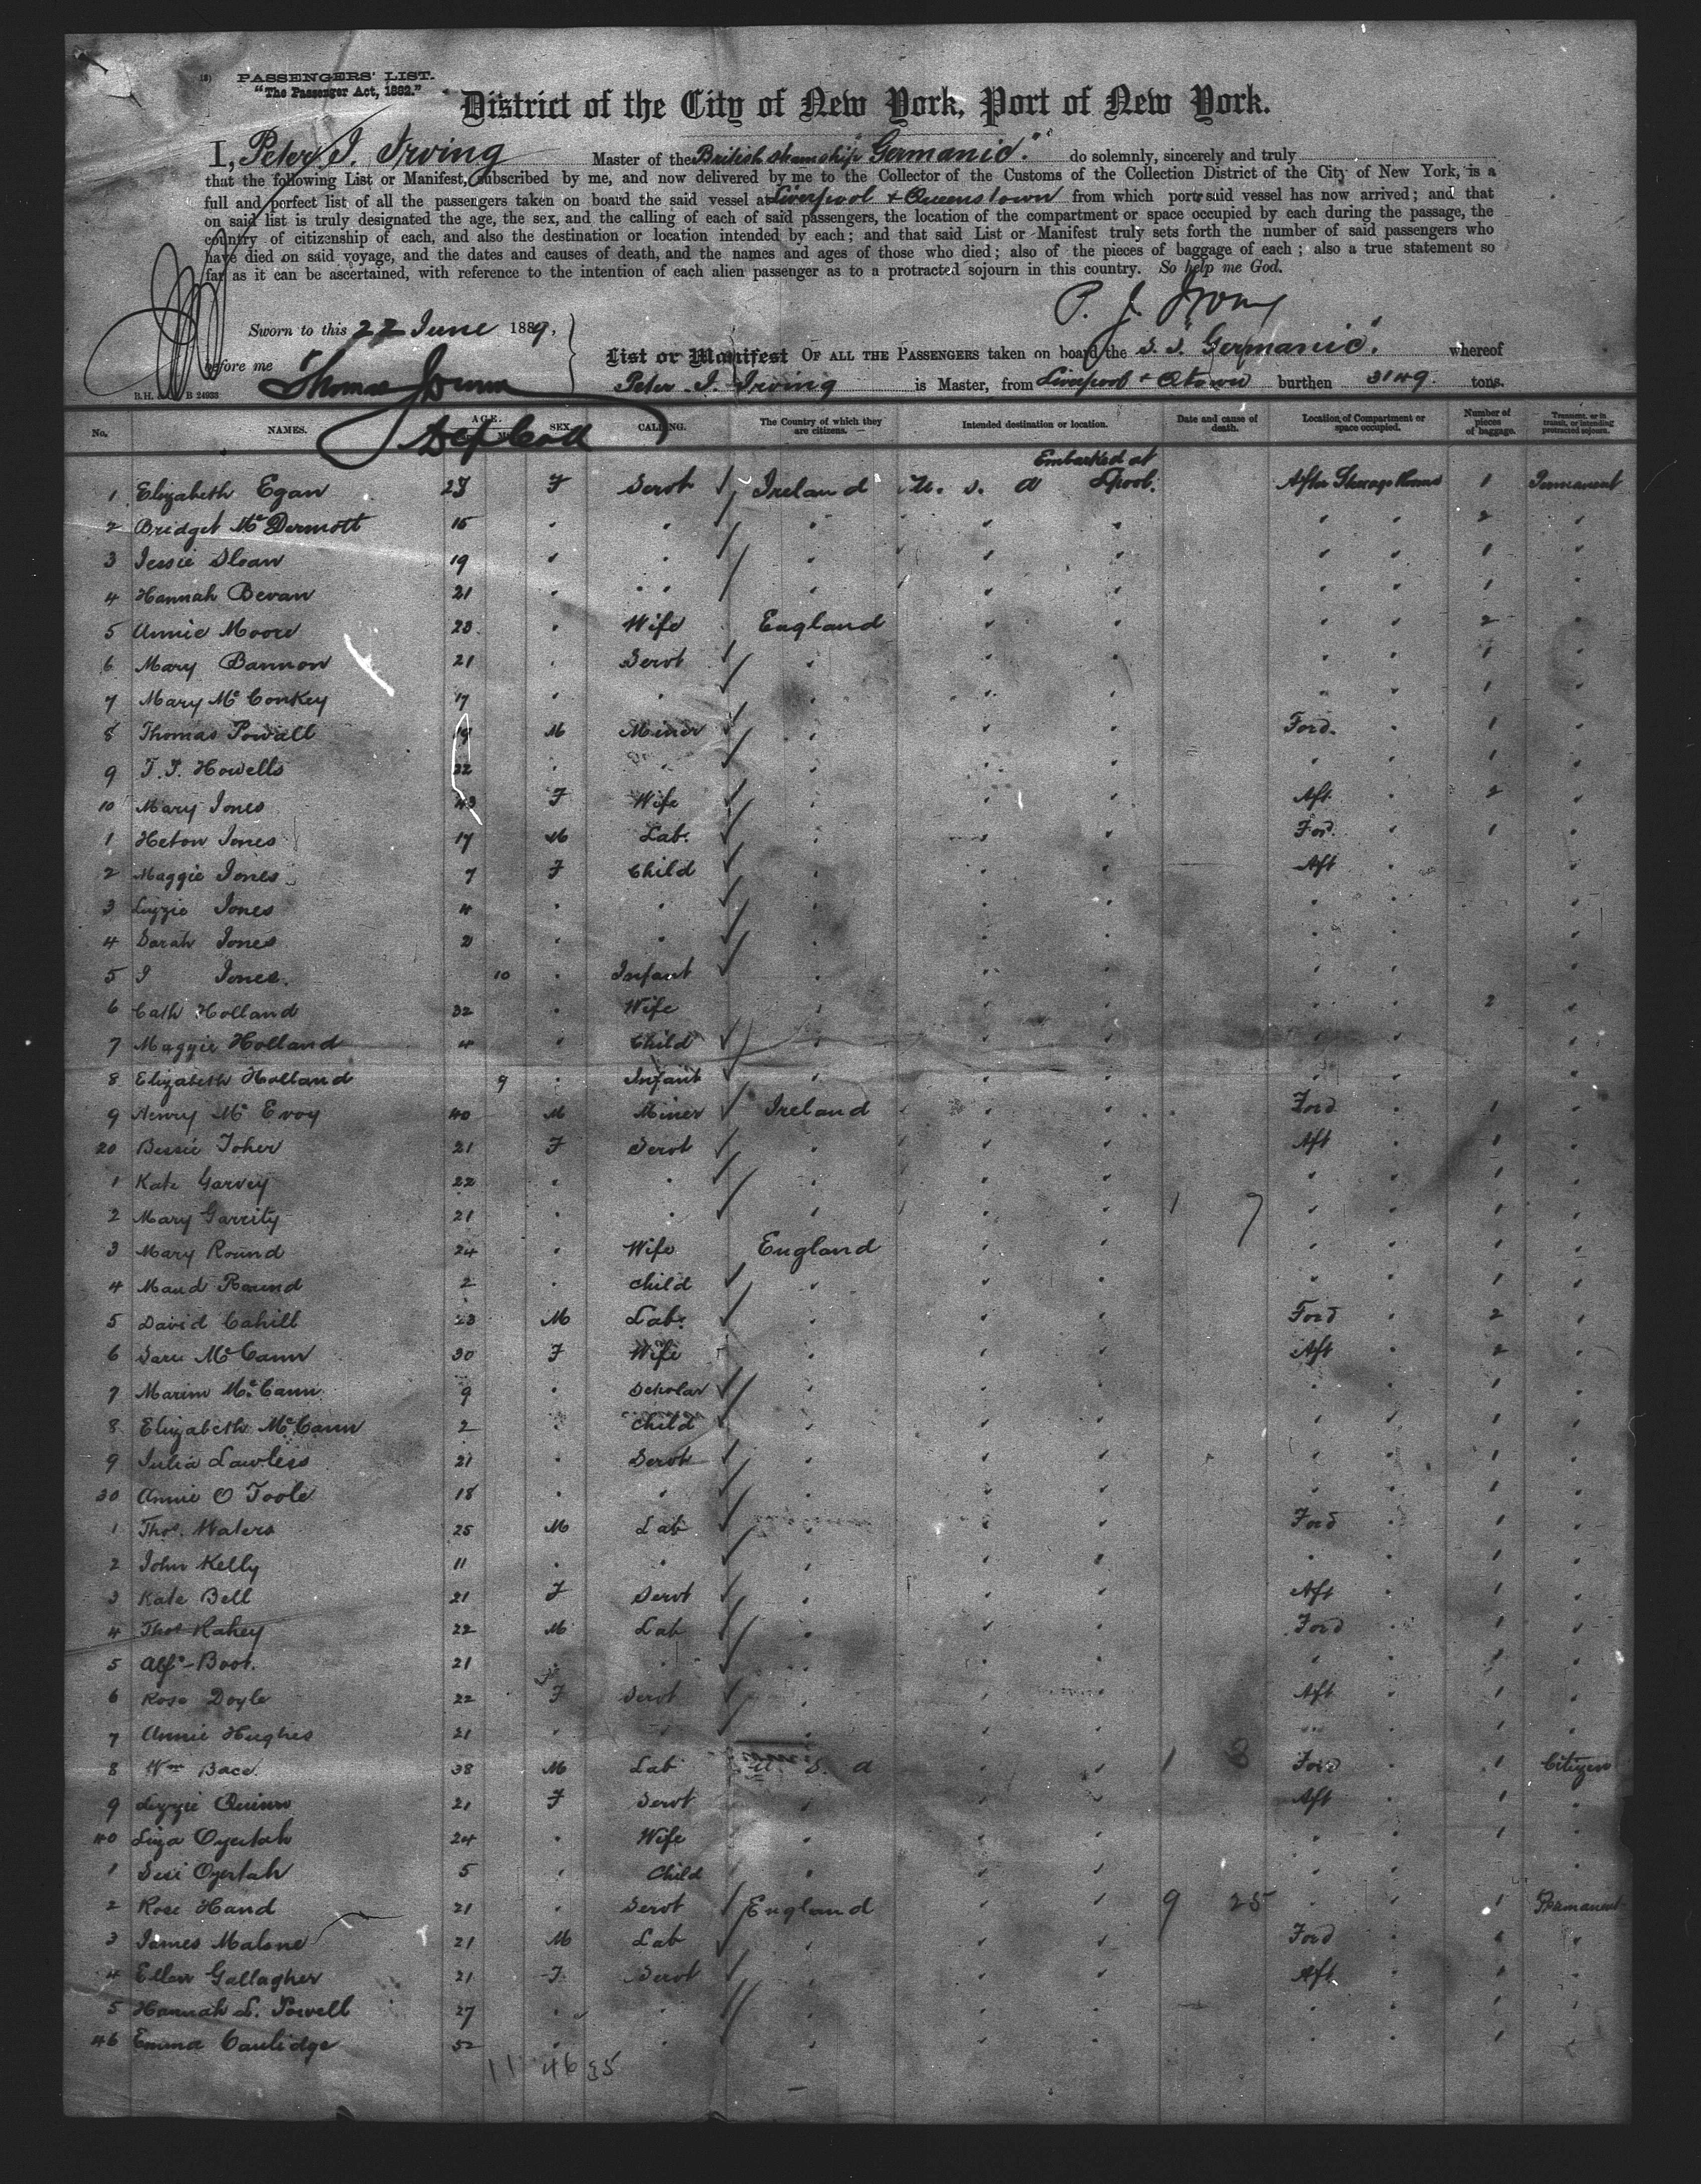 PASSENGERS' LIST.
"The Passenger Act, 1882."
District of the City of New York, Port of New York.
I, Peter J. Irving Master of the British steamship "Germanic" do solemnly, sincerely and truly
that the following List or Manifest, subscribed by me, and now delivered by me to the Collector of the Customs of the Collection District of the City of New York, is a
full and perfect list of all the passengers taken on board the said vessel at Liverpool + Queenstown from which ports said vessel has now arrived; and that
on said list is truly designated the age, the sex, and the calling of each of said passengers, the location of the compartment or space occupied by each during the passage, the
country of citizenship of each, and also the destination or location intended by each; and that said List or Manifest truly sets forth the number of said passengers who
have died on said voyage, and the dates and causes of death, and the names and ages of those who died; also of the pieces of baggage of each; also a true statement so
far as it can be ascertained, with reference to the intention of each alien passenger as to a protracted sojourn in this country. So help me God.
P. J. Irving
Sworn to this 22 June 1889,
before me Thomas
List or Manifest OF ALL THE PASSENGERS taken on board the S. S. "Germanic". whereof
Peter J. Irving is Master, from Liverpool + Qtown burthen 3149 tons.
B 24933
Dep Coll
No. NAMES. AGE. SEX. CALLING. The Country of which they are citizens. Intended destination or location. Date and cause of death. Location of Compartment or space occupied. Number of pieces of baggage. Transient, or in transit, or intending protracted sojourn.
Embarked at
1 Elizabeth Egan F Servt Ireland U. S. A Lpool. After Steerage 1 Permanent
2 Bridget McDermott 2
3 Jessie Sloan 19 1
4 Hannah Bevan 21 1
5 Annie Moore 23 Wife England 2
6 Mary Bannon 21 Servt 1
7 Mary McConkey 17 1
8 Thomas Powell M Miner Ford. 1
9 T. J. Howells 22 1
10 Mary Jones 43 F Wife Aft 2
1 Heton Jones 17 M Lab. Ford. 1
2 Maggie Jones 7 F Child Aft
3 Lizzie Jones 4
4 Sarah Jones 2
5 J Jones. 10 Infant
6 Cath Holland 32 Wife 2
7 Maggie Holland 4 Child
8 Elizabeth Holland 9 Infant
9 Henry McEvoy 40 M Miner Ireland Ford 1
20 Bessie Toher 21 F Servt Aft 1
1 Kate Garvey 22 1
2 Mary Garrity 21 1 7 1
3 Mary Round 24 Wife England 1
4 Maud Round 2 Child 1
5 David Cahill 23 M Lab. Ford 2
6 McCann 30 F Wife Aft 2
7 McCann 9 Scholar 1
8 Elizabeth McCann 2 Child 1
9 Julia Lawless 21 Servt 1
30 Annie O Toole 18 1
1 Thos. Waters 25 M Lab Ford 1
2 John Kelly 11 1
3 Kate Bell 21 F Servt Aft 1
4 Thos Kahey 22 M Lab Ford 1
5 Alfd Boot. 21 1
6 Rose Doyle 22 F Servt Aft 1
7 Annie Hughes 21 1
8 Wm Bace. 38 M Lab U. S. A 1 3 Ford 1 Citizen
9 Lizzie Quinn 21 F Servt Aft 1
40 Liza Oyertah 24 Wife 1
1 Oyertah 5 Child
2 Rose Hand 21 Servt England 9 25 1 Permanent
3 James Malone 21 M Lab Ford
4 Ellen Gallagher 21 F Servt Aft. 1
5 Hannah L. Powell 27 1
46 Emma Caulidge 52 1
11 46 35